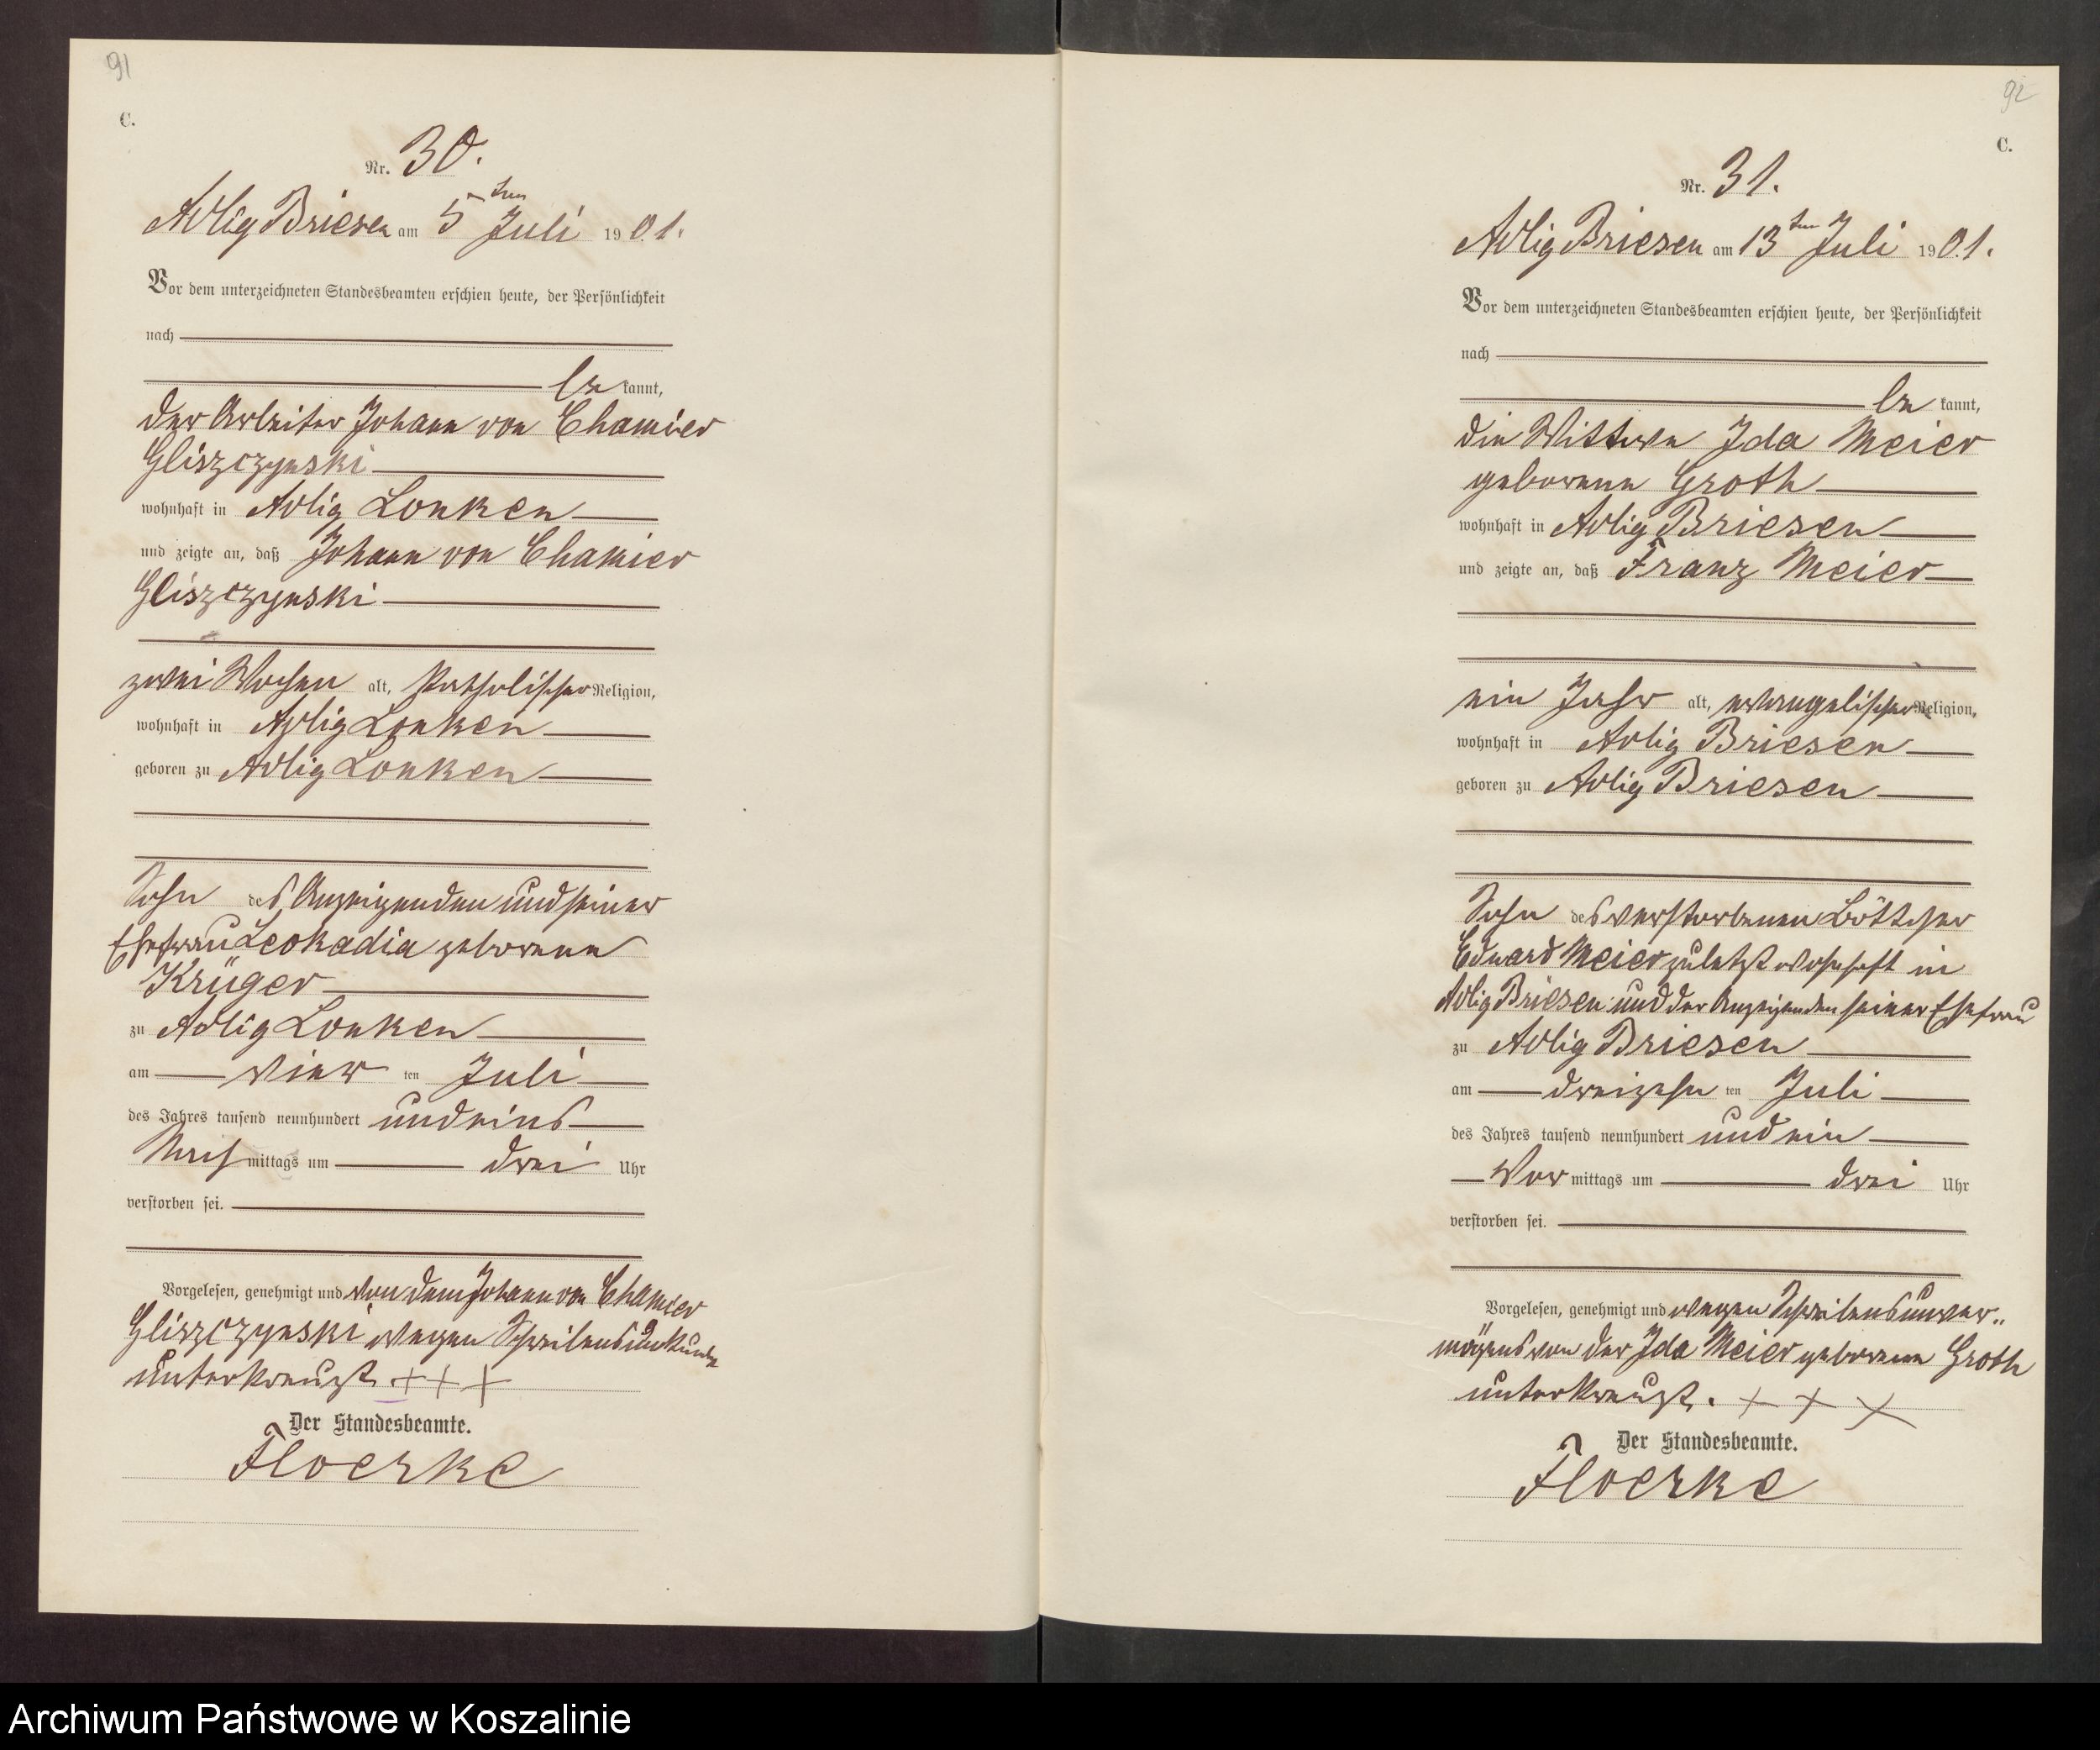 91
C.
Nr. 30.
Adlig Briesen am 5ten Juli 1901.
Vor dem unterzeichneten Standesbeamten erschien heute, der Persönlichkeit
nach
be kannt,
der Arbeiter Johann von Chamier
Gliszczynski
wohnhaft in Adlig Lonken
und zeigte an, daß Johann von Chamier
Gliszczynski
zwei Wochen alt, katholischer Religion,
wohnhaft in Adlig Lonken
geboren zu Adlig Lonken
Sohn des Anzeigenden und seiner
Ehefrau Leokadia geborene
Krüger
zu Adlig Lonken
am vier ten Juli
des Jahres tausend neunhundert und eins
Nach mittags um drei Uhr
verstorben sei.
Vorgelesen, genehmigt und von dem Johann von Chamier
Gliszczynski wegen Schreibensunkunde
unterkreuzt +++
Der Standesbeamte.
Floerke
92
C.
Nr. 31.
Adlig Briesen am 13ten Juli 1901.
Vor dem unterzeichneten Standesbeamten erschien heute, der Persönlichkeit
nach
be kannt,
die Wittwe Ida Meier
geborene Groth
wohnhaft in Adlig Briesen
und zeigte an, daß Franz Meier
ein Jahr alt, evangelischer Religion,
wohnhaft in Adlig Briesen
geboren zu Adlig Briesen
Sohn des verstorbenen Böttcher
Eduard Meier zuletzt wohnhaft in
Adlig Briesen und der Anzeigenden seiner Ehefrau
zu Adlig Briesen
am dreizehn ten Juli
des Jahres tausend neunhundert und ein
Vor mittags um drei Uhr
verstorben sei.
Vorgelesen, genehmigt und wegen Schreibensunver„
mögens von der Ida Meier geborene Groth
unterkreuzt. + + +
Der Standesbeamte.
Floerke
Archiwum Państwowe w Koszalinie